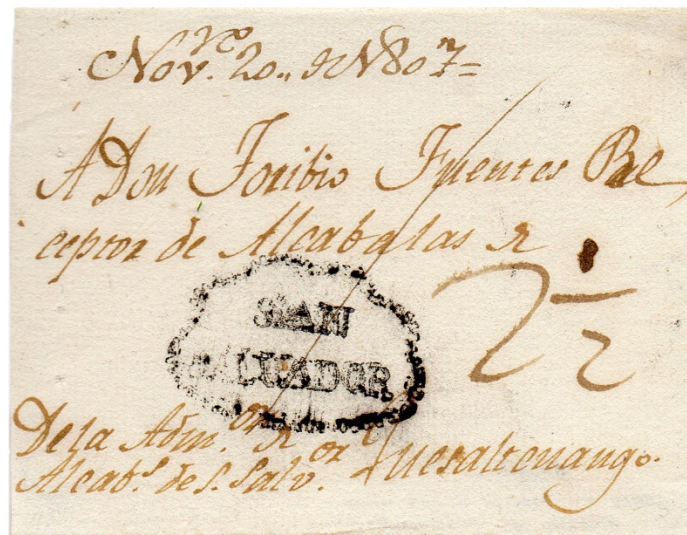 Nov.re 20,, de 1807=
A Don Toribio Fuentes Re
ceptor de Alcabalas de
2 1/2
SAN
SALUADOR
De la Adm.on de
Alcab.s de S. Salv.or
Quesaltenango.